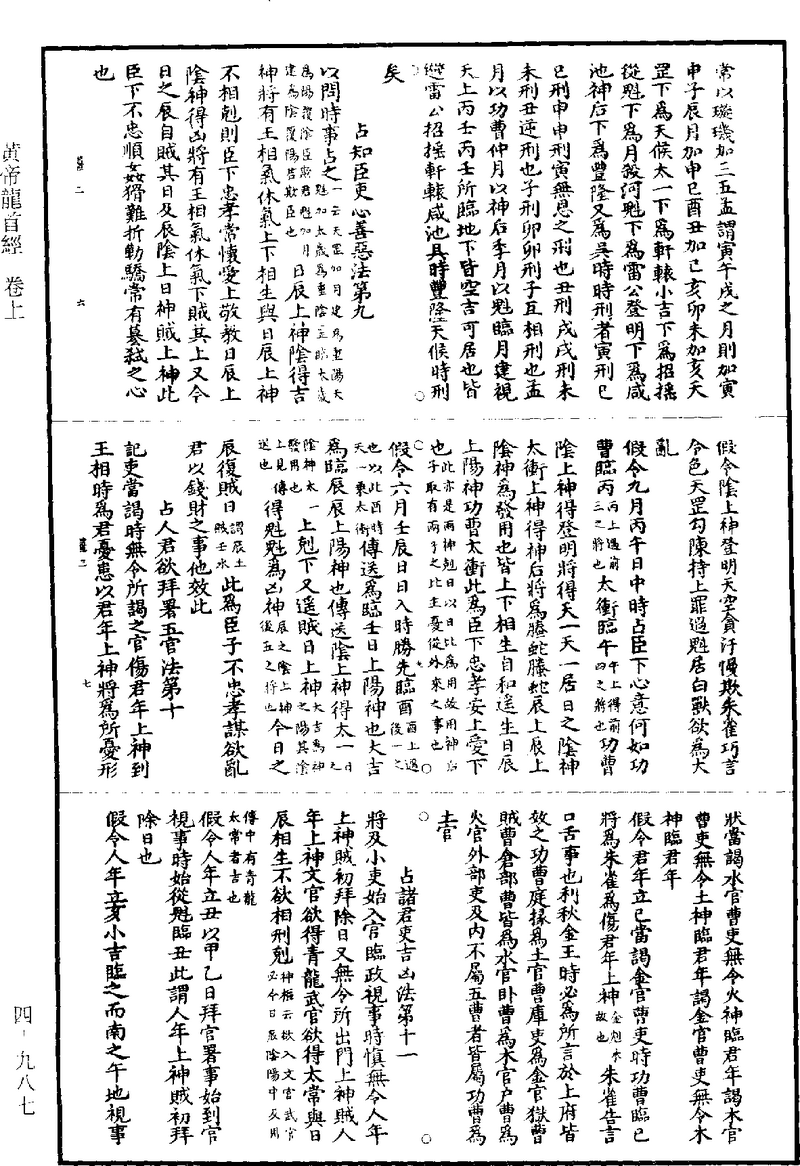 常以璇璣加三五孟謂寅午戌之月則加寅
申子辰月加申巳酉丑加巳亥卯未加亥天
罡下為天候太一下為軒轅小吉下為招搖
從魁下為月殺河魁下為雷公登明下為咸
池神后下為豐隆又為吳時時刑者寅刑巳
巳刑申申刑寅無恩之刑也丑刑戌戌刑未
未刑丑逆刑也子刑卯卯刑子互相刑也孟
月以功曹仲月以神后季月以魁臨月建視
天上丙壬丙壬所臨地下皆空吉可居也皆
避雷公招搖軒轅咸池具時豐隆天候時刑
矣
占知臣吏心善惡法第九
以問時事占之一云天罡加月建為重陽天
魁加太歲為重陰
日辰上神陰得吉
神將有王相氣休氣上下相生與日辰上神
不相剋則臣下忠孝常懷愛上敬教日辰上
陰神得凶將有王相氣休氣下賊其上又今
日之辰自賊其日及辰陰上日神賊上神此
臣下不忠順姦猾難折勒驕常有慕弒之心
也
黃帝龍首經 卷上
薑二 六
假令陰上神登明天空貪汙慢欺朱雀巧言
令色天罡勾陳持上罪過魁居白獸欲為大
亂
假令九月丙午日中時占臣下心意何如功
曹臨丙丙上遇前三之將也太衝臨午午上得前四之將也功曹
陰上神得登明將得天一天一居日之陰神
太衝上神得神后將為螣蛇螣蛇辰上辰上
陰神為發用也皆上下相生自和遙生日辰
上陽神功曹太衝此為臣下忠孝安上愛下
也此亦是兩神剋日以日比為用故用神后
子取有兩子之比主憂從外來之事也
假令六月壬辰日日入時勝先臨酉酉上遇後一之
也以此酉時天一乘太衝傳送為臨壬日上陽神也大吉
為臨辰辰上陽神也傳送陰上神得太一日
陰神太一發用也上剋下又遙賊日上神大吉為神之陽其陰
上見傳送也得魁魁為凶神辰之陰上神後五之將也今日之
辰復賊日謂辰土賊壬水此為臣子不忠孝謀欲亂
君以錢財之事他效此
占人君欲拜署五官法第十
記吏當謁時無令所謁之官傷君年上神到
王相時為君憂患以君年上神將為所憂形
薑二 七
狀當謁水官曹吏無令火神臨君年謁木官
曹吏無令土神臨君年謁金官曹吏無令木
神臨君年
假令君年立巳當謁金官曹吏時功曹臨巳
將為朱雀為傷君年上神金剋木故也朱雀告言
口舌事也利秋金王時必為所言於上府皆
效之功曹庭掾為土官曹庫吏為金官獄曹
賊曹倉部曹皆為水官卧曹為木官戶曹為
火官外部吏及內不屬五曹者皆屬功曹為
土官
占諸君吏吉凶法第十一
將及小吏始入官臨政視事時慎無令人年
上神賊初拜除日又無令所出門上神賊人
年上神文官欲得青龍武官欲得太常與日
辰相生不欲相刑剋神樞云欲入文官武官
必令日辰陰陽中及用
傳中有青龍太常者吉也
假令人年立丑以甲乙日拜官署事始到官
視事時始從魁臨丑此謂人年上神賊初拜
除日也
假令人年立亥小吉臨之而南之午地視事
四-九八七